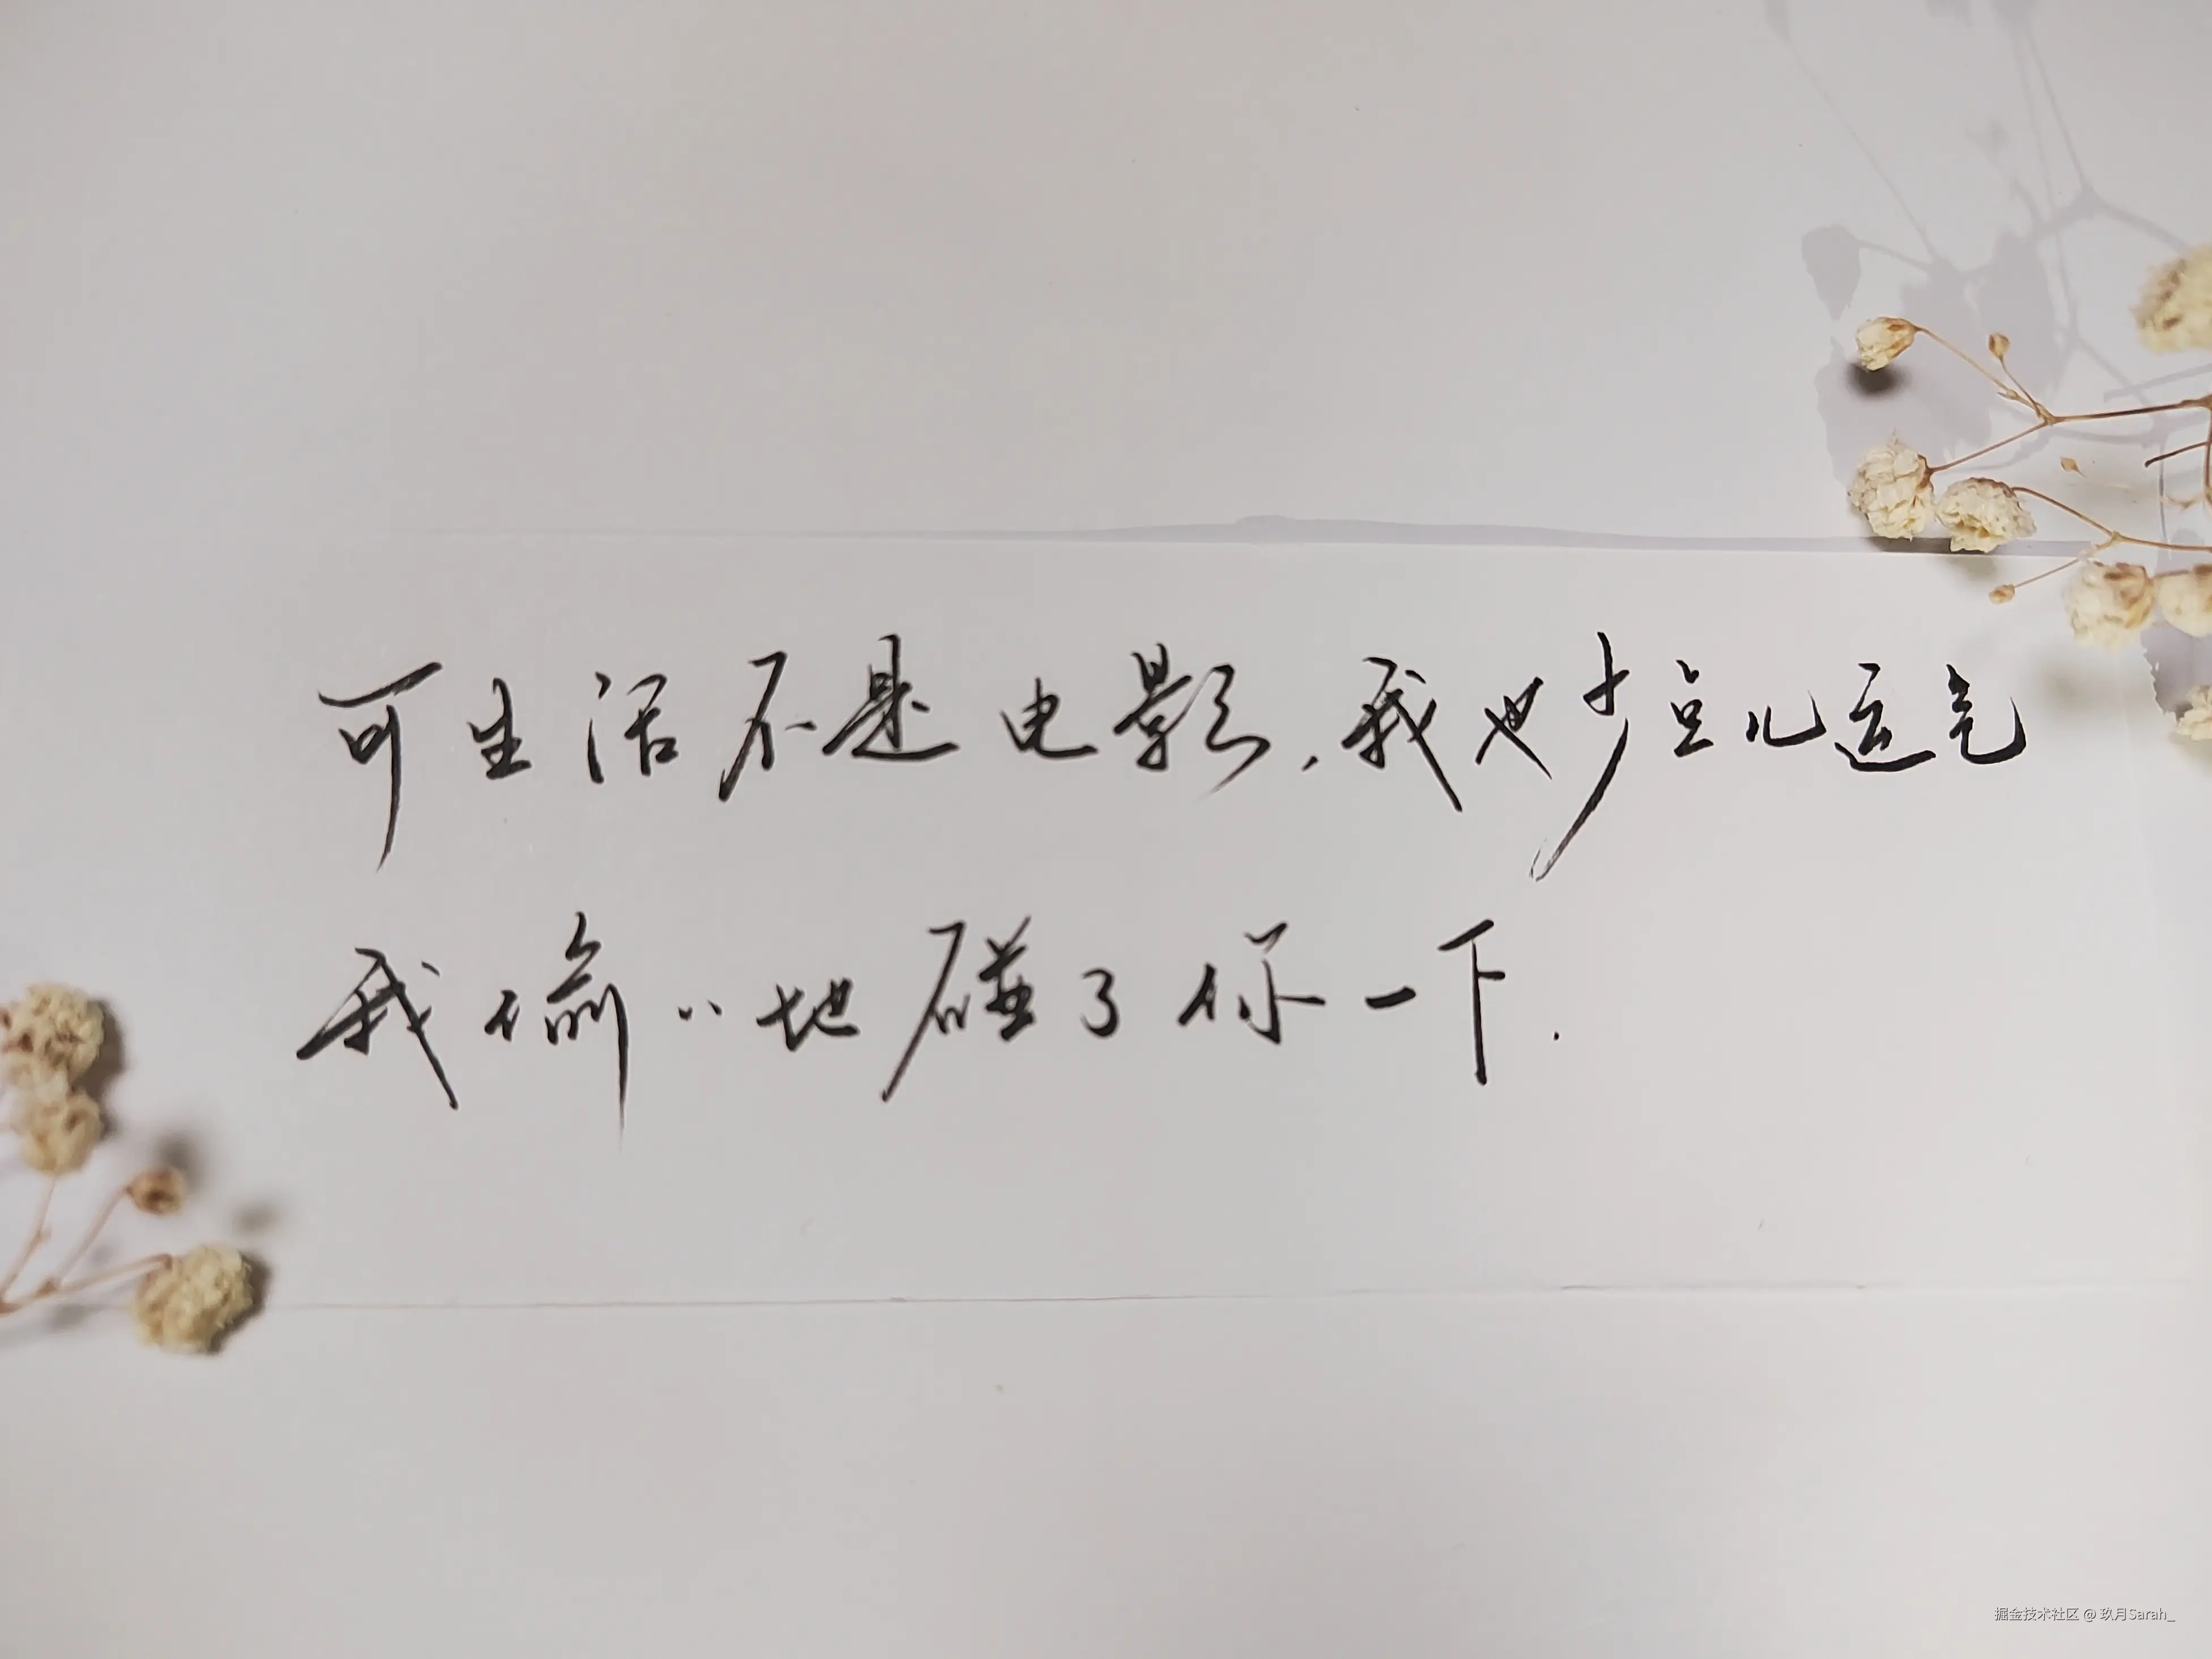 可生活不是电影,我也少点儿运气
我偷偷地碰了你一下.
掘金技术社区 @ 玖月Sarah_